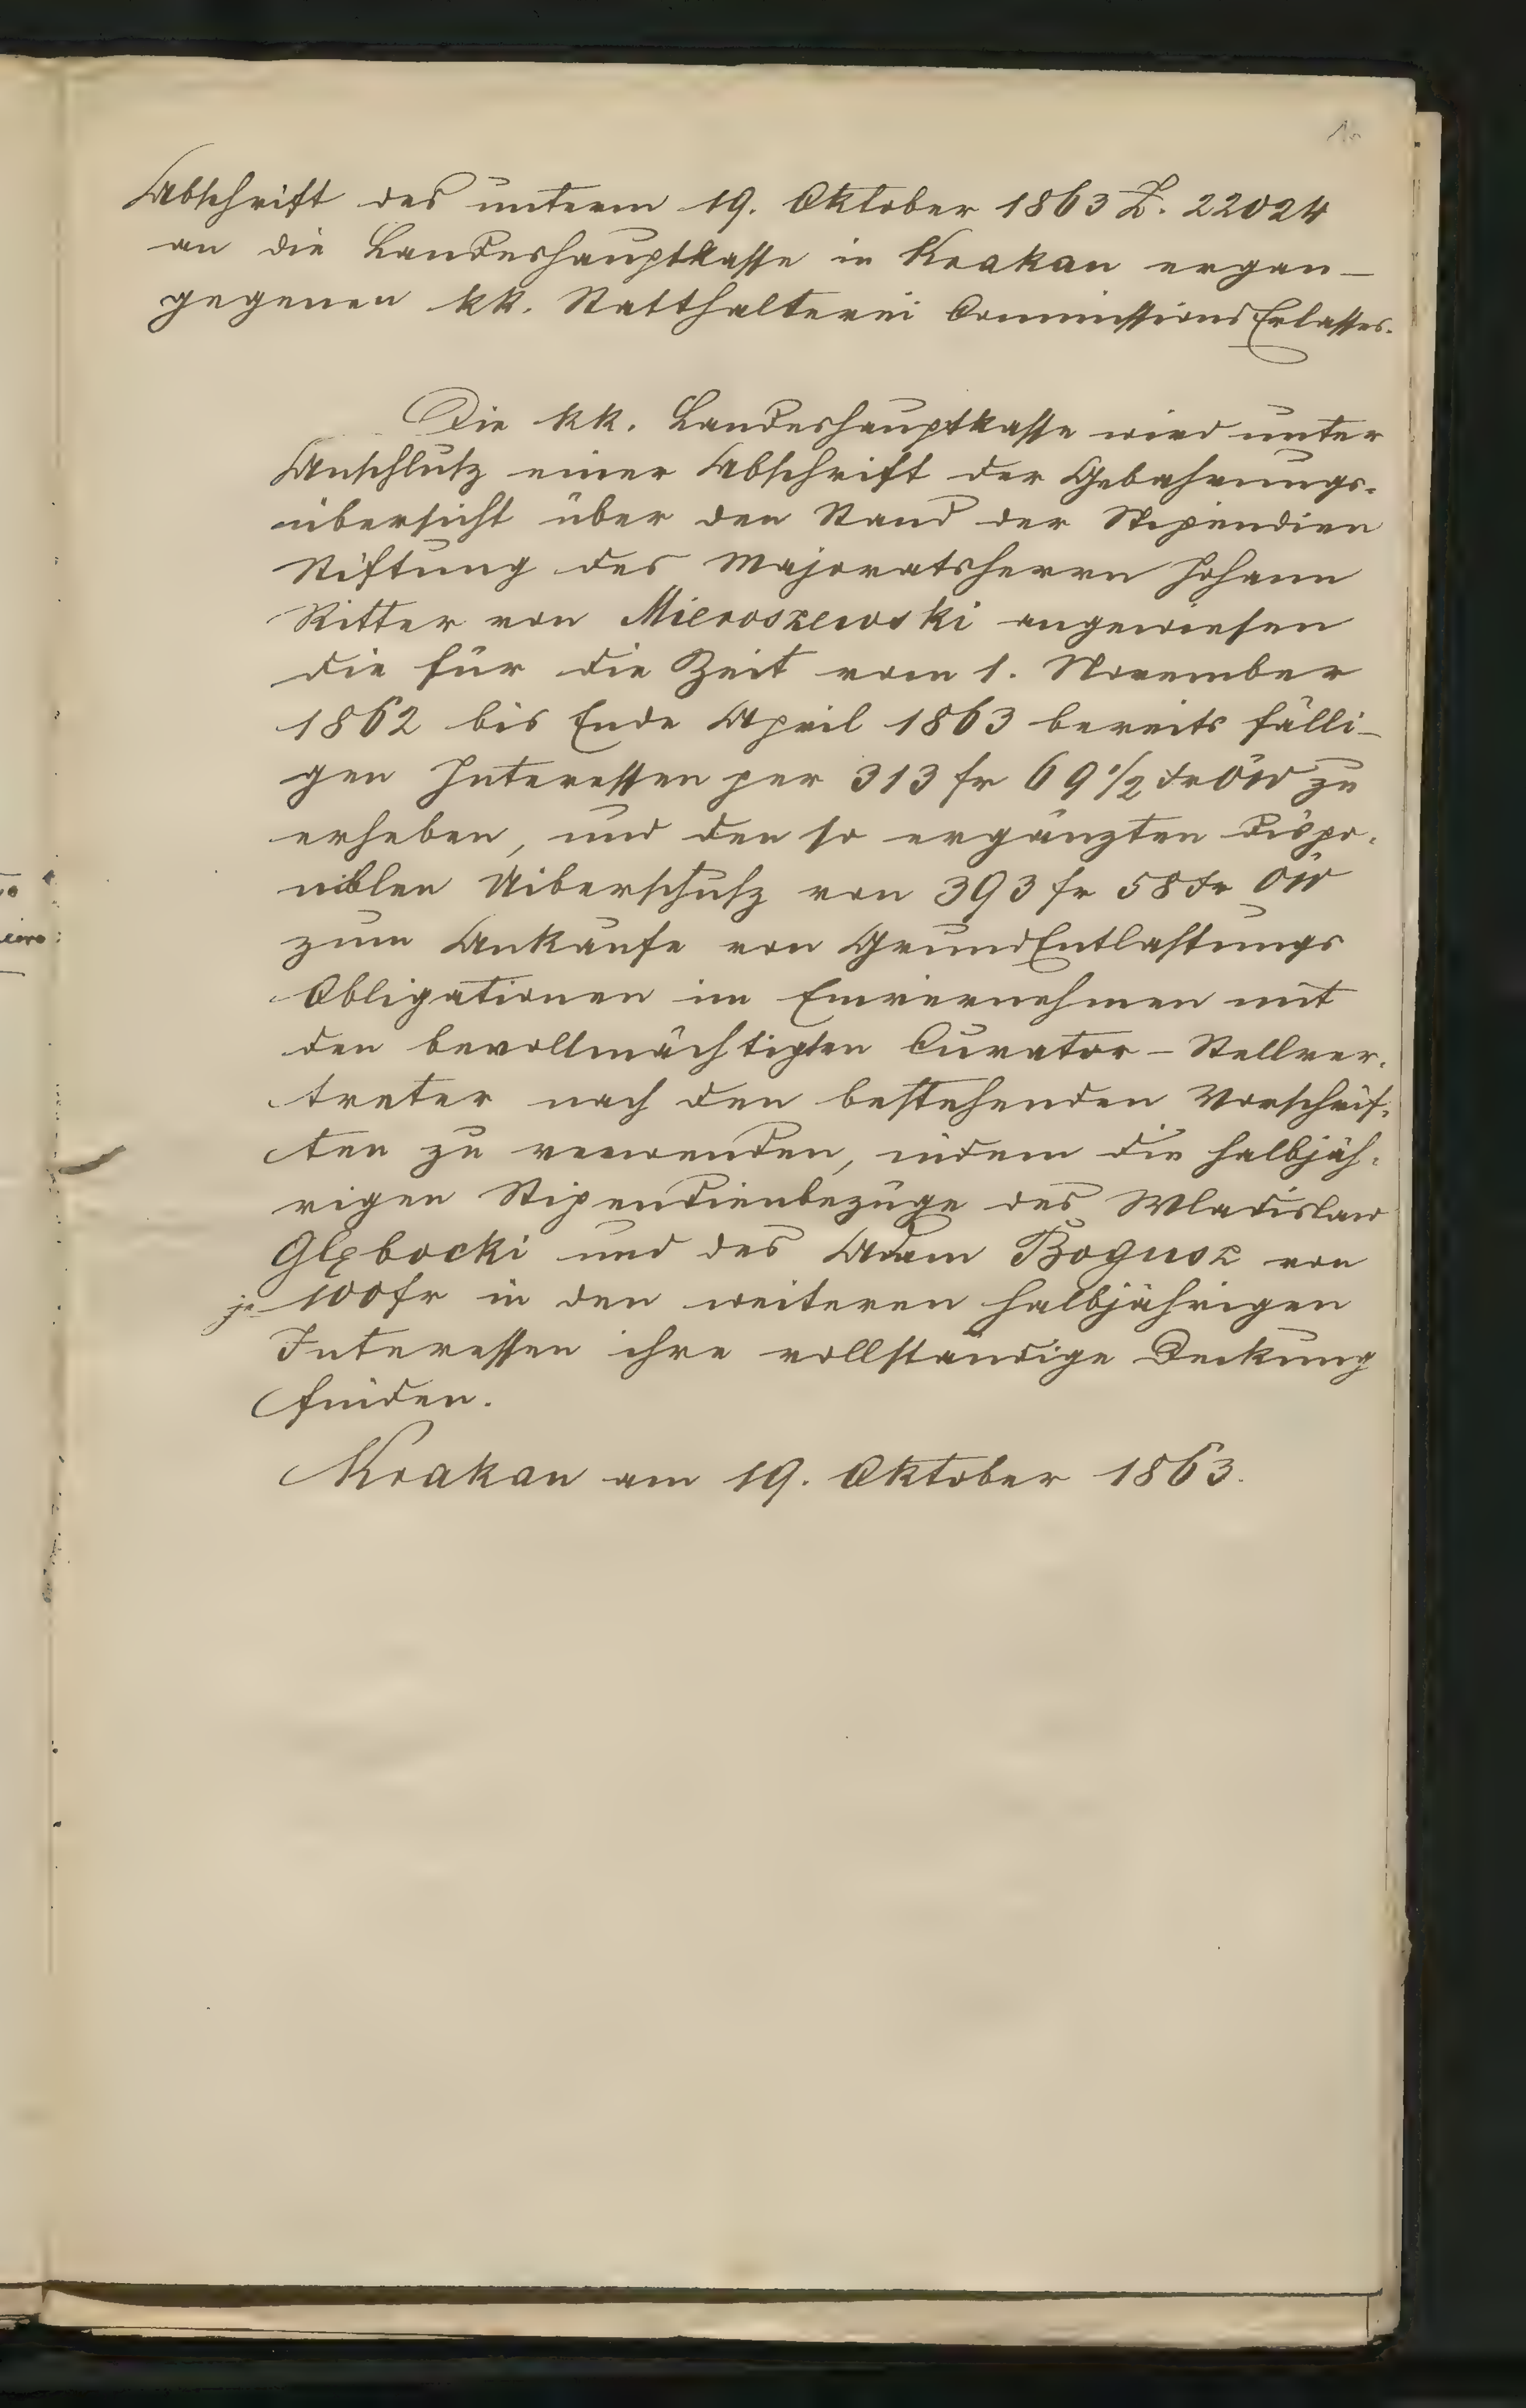 Abschrift des unterm 19. Oktober 1863 Z. 22024
an die Landeshauptkasse in Krakau ergan–
gegenen kk. Statthalterei Commissions Erlasses.
Die kk. Landeshauptkasse wird unter
Anschlusz einer Abschrift der Gebahrungs-
übersicht über den Stand der Stipendien
Stiftung des Majoratsherrn Johann
Ritter von Mieroszewski angewiesen
die für die Zeit vom 1. November
1862 bis Ende April 1863 bereits fälli–
gen Interessen per 313 fr 69 1/2 xr ÖW zu
erheben, und den so ergänzten dispo-
niblen Uiberschusz von 393 fr 58 xr ÖW
zum Ankaufe von Grund Entlastungs
Obligationen im Einvernehmen mit
den bevollmächtigten Curator – Stellver-
treter nach den bestehenden Vorschrif-
ten zu verwenden, indem die halbjäh-
rigen Stipendienbezüge des Wladislaw
Głębocki und des Adam Bogusz von
je 100 fr in den weiteren halbjährigen
Interessen ihre vollständige Deckung
finden.
Krakau am 19. Oktober 1863.